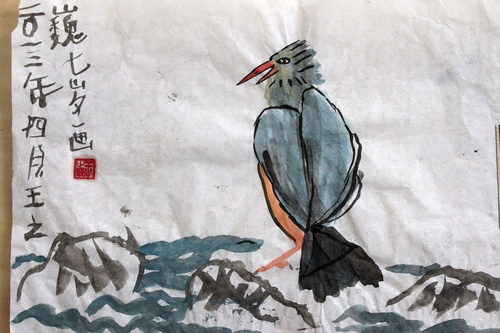 二〇一三年四月王之
巍七岁画